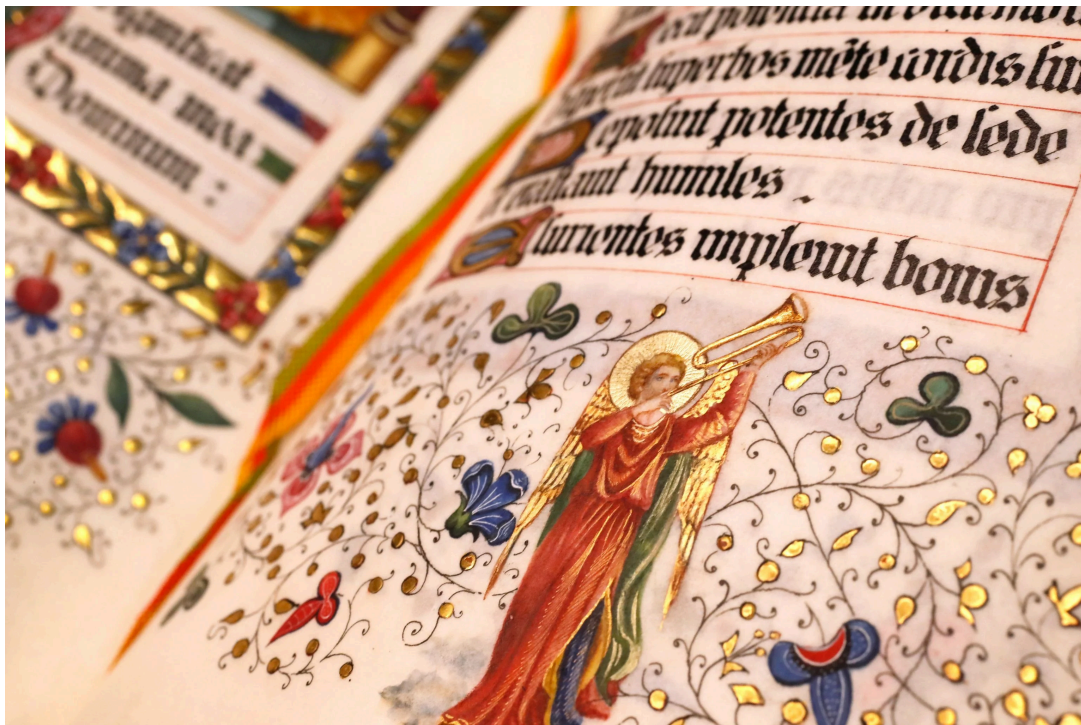 Magnificat
anima mea
Dominum :
Fecit potentiam in
superbos mēte cordis
Deposuit potentes de sede
et exaltauit humiles .
Esurientes impleuit bonis